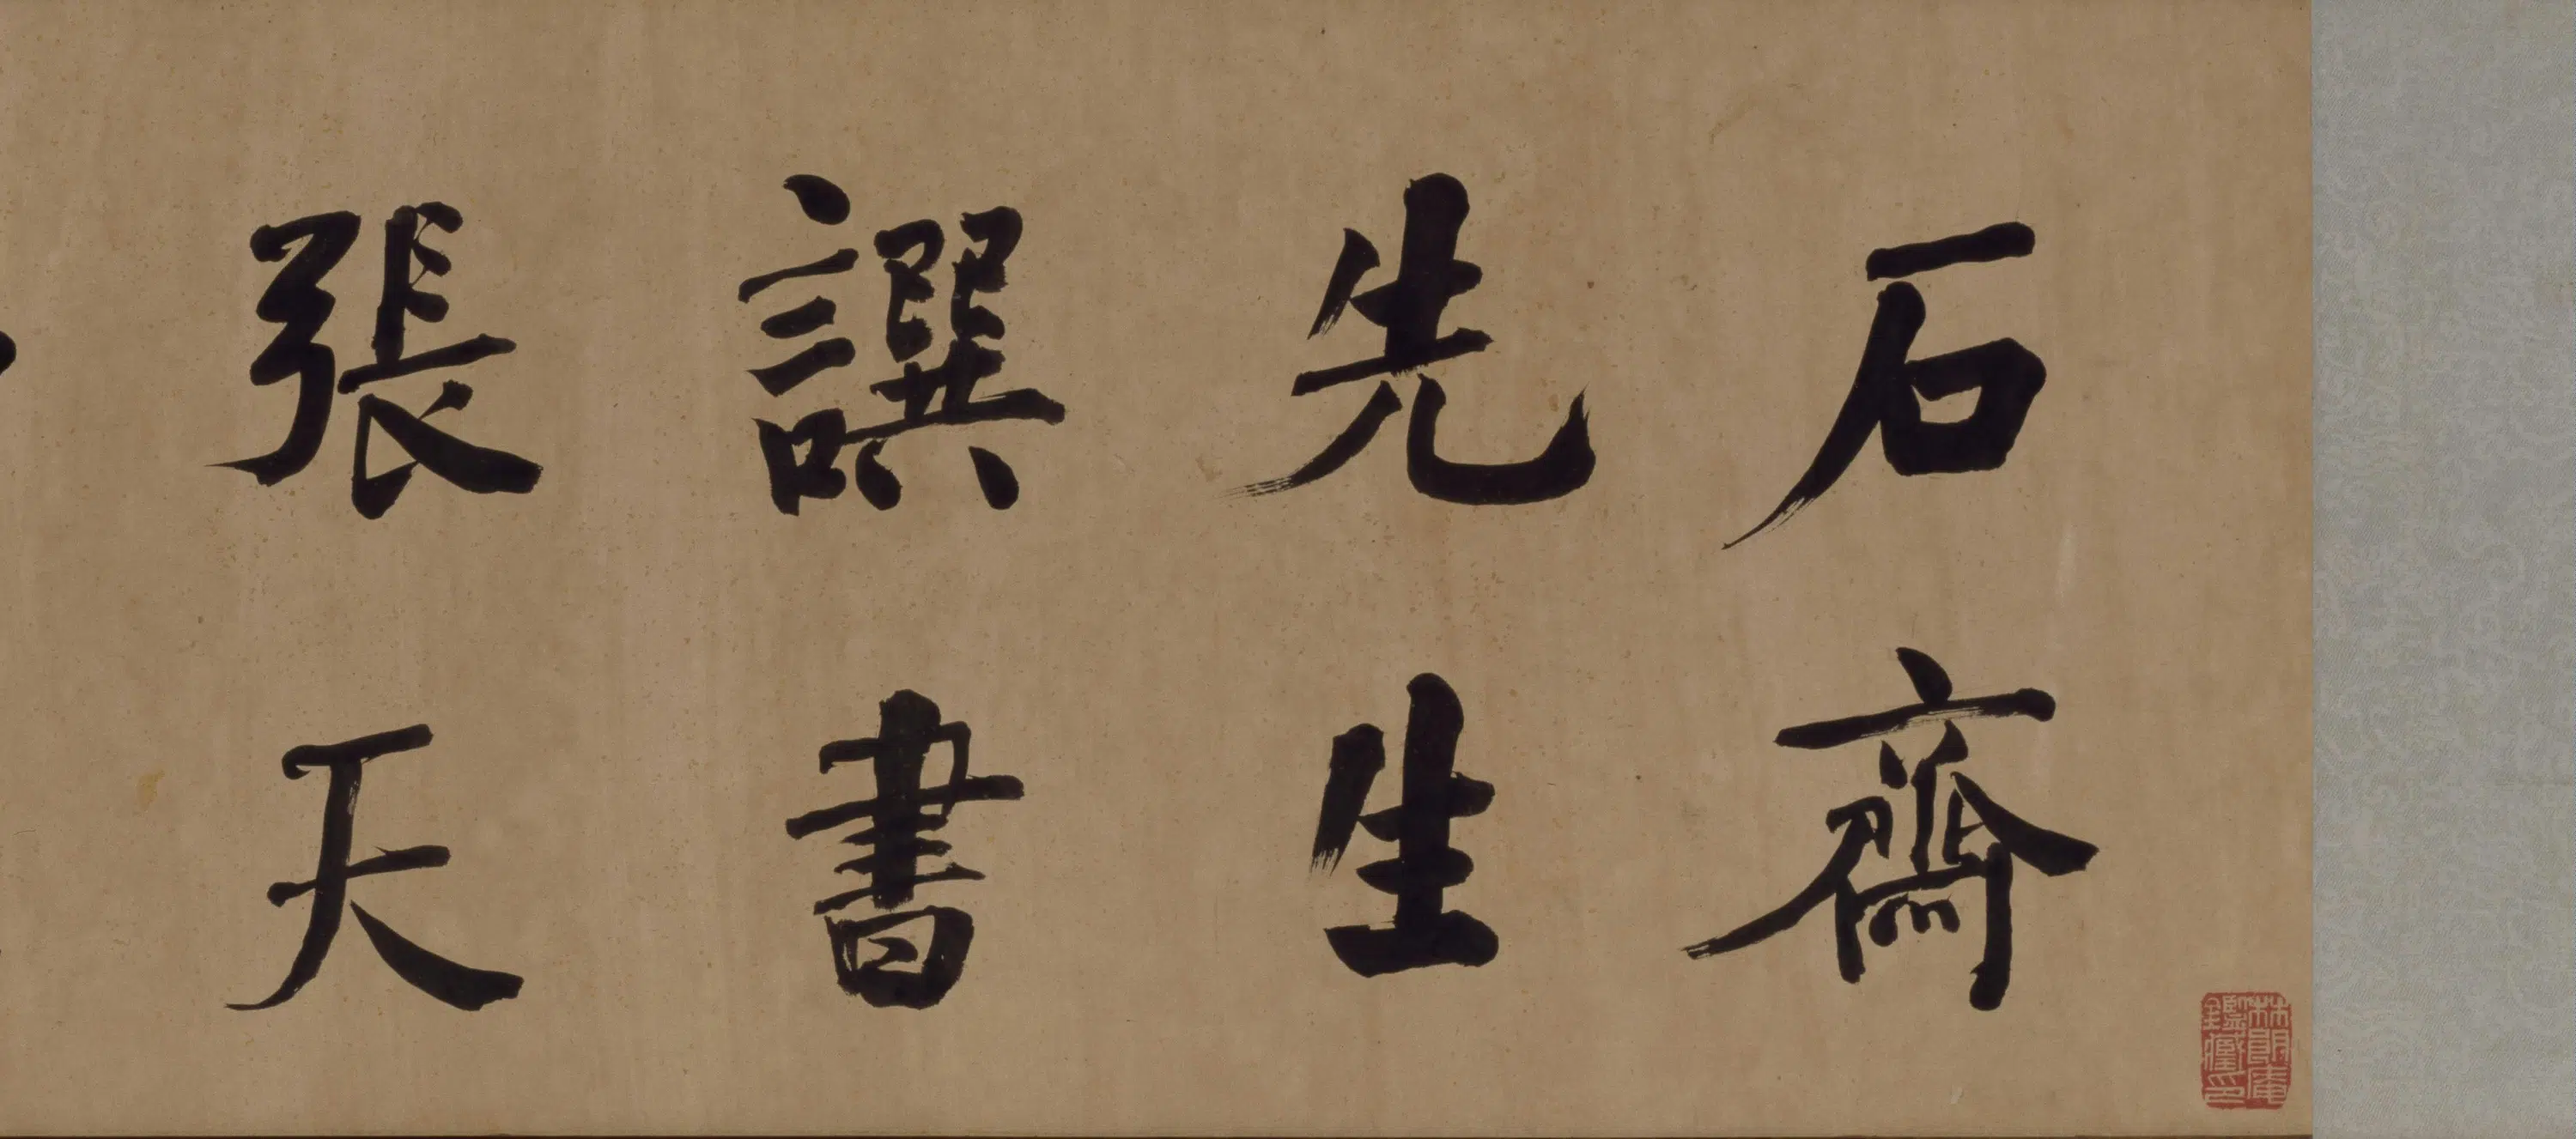 石齋
先生
譔書
張天
林朗庵
鑑藏印